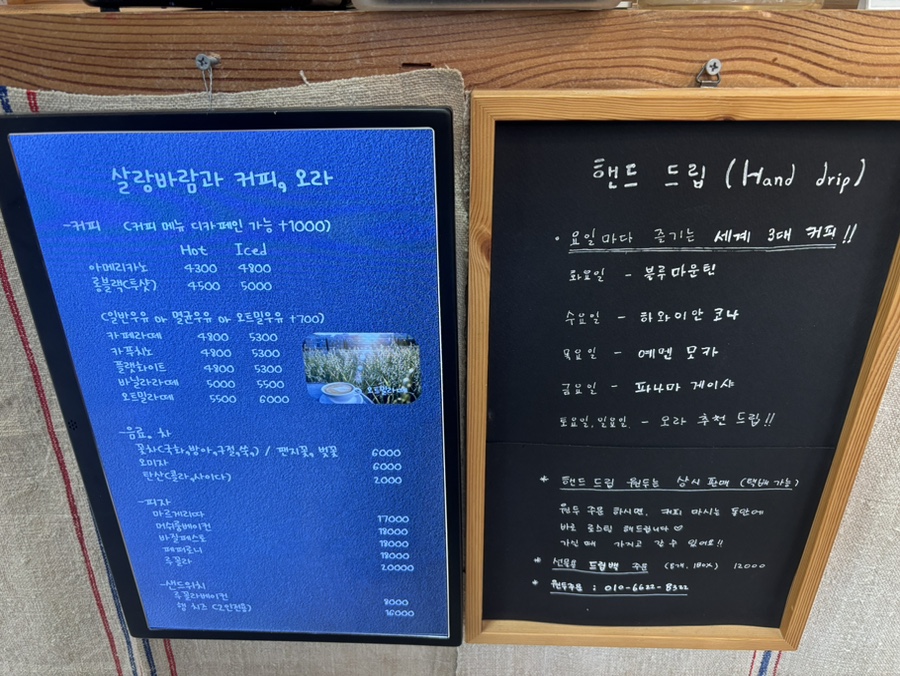 살랑바람과 커피, 오라
-커피 (커피 메뉴 디카페인 가능 +1000)
Hot Iced
아메리카노 4300 4800
롱블랙(투샷) 4500 5000
(일반우유 or 멸균우유 or 오트밀우유 +700)
카페라떼 4800 5300
카푸치노 4800 5300
플랫화이트 4800 5300
바닐라라떼 5000 5500
오트밀라떼 5500 6000
오트밀라떼
-음료, 차
꽃차(국화,방아,구절,쑥,) / 팬지꽃, 벚꽃 6000
오미자 6000
탄산(콜라,사이다) 2000
-피자
마르게리따 17000
머쉬룸베이컨 18000
바질페스토 18000
페퍼로니 18000
루꼴라 20000
-샌드위치
루꼴라베이컨 8000
햄 치즈 (2인전용) 16000
핸드 드립 (Hand drip)
· 요일마다 즐기는 세계 3대 커피!!
화요일 - 블루마운틴
수요일 - 하와이안 코나
목요일 - 예멘 모카
금요일 - 파나마 게이샤
토요일, 일요일 - 오라 추천 드립!!
* 핸드 드립 원두는 상시 판매 (택배 가능)
원두 주문 하시면, 커피 마시는 동안에
바로 로스팅 해드립니다 ♡
가실 때 가지고 갈 수 있어요!!
* 선물용 드립백 주문 (8개, 1BOX) 12000
* 원두주문 : 010-6622-8322